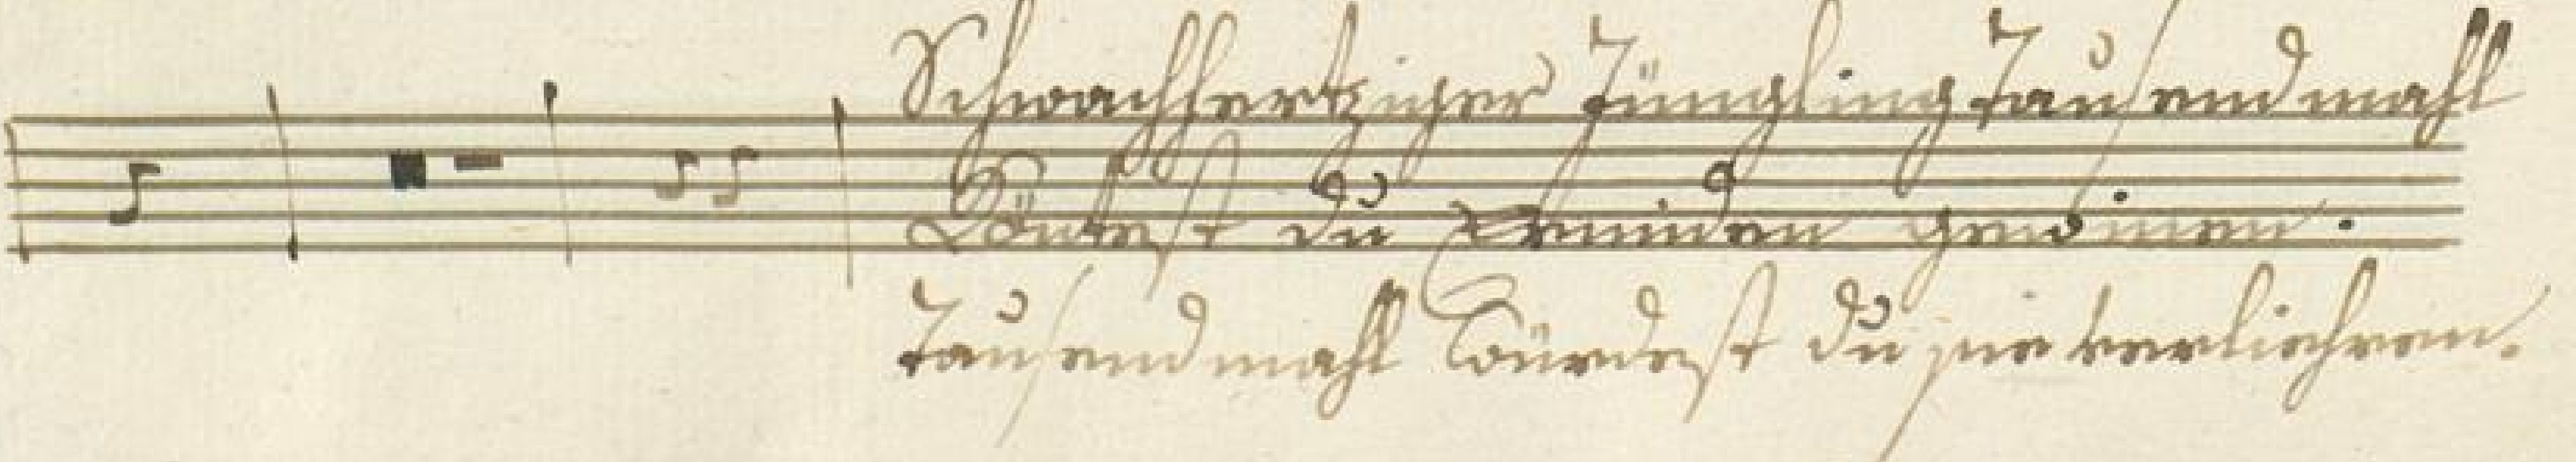 Schwachhertziger Jüngling tausendmahl
Köntest du Armiden gewinen.
tausendmahl würdest du sie verliehren.